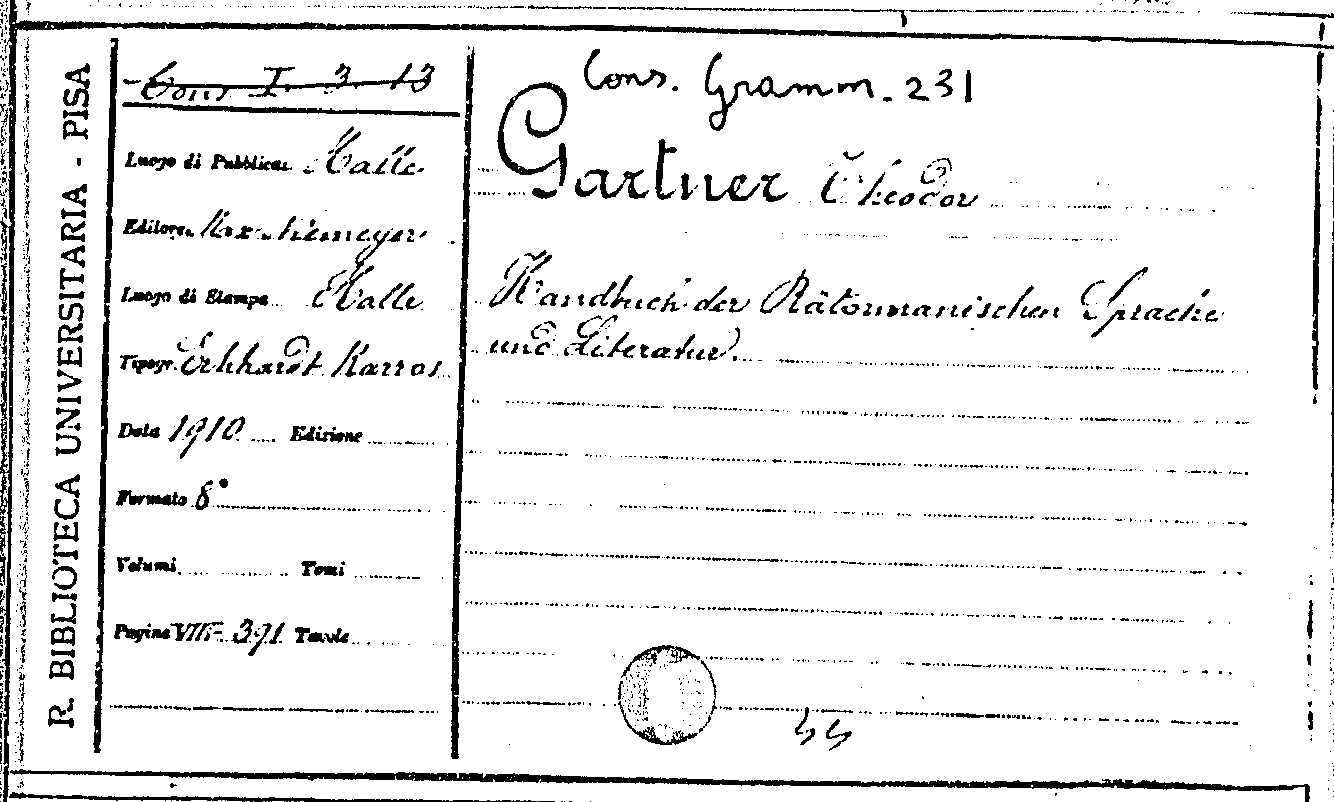 R. BIBLIOTECA UNIVERSITARIA - PISA
Cons. I. 3. 13
Luogo di Pubblicaz. Halle
Editore Max Niemeyer
Luogo di Stampa Halle
Tipogr. Erhhardt Karras
Data 1910 Edizione
Formato 8°
Volumi Tomi
Pagine VIII-391 Tavole
Cons. Gramm. 231
Gartner Theodor
Handbuch der Rätormanischen Sprache
und Literatur.